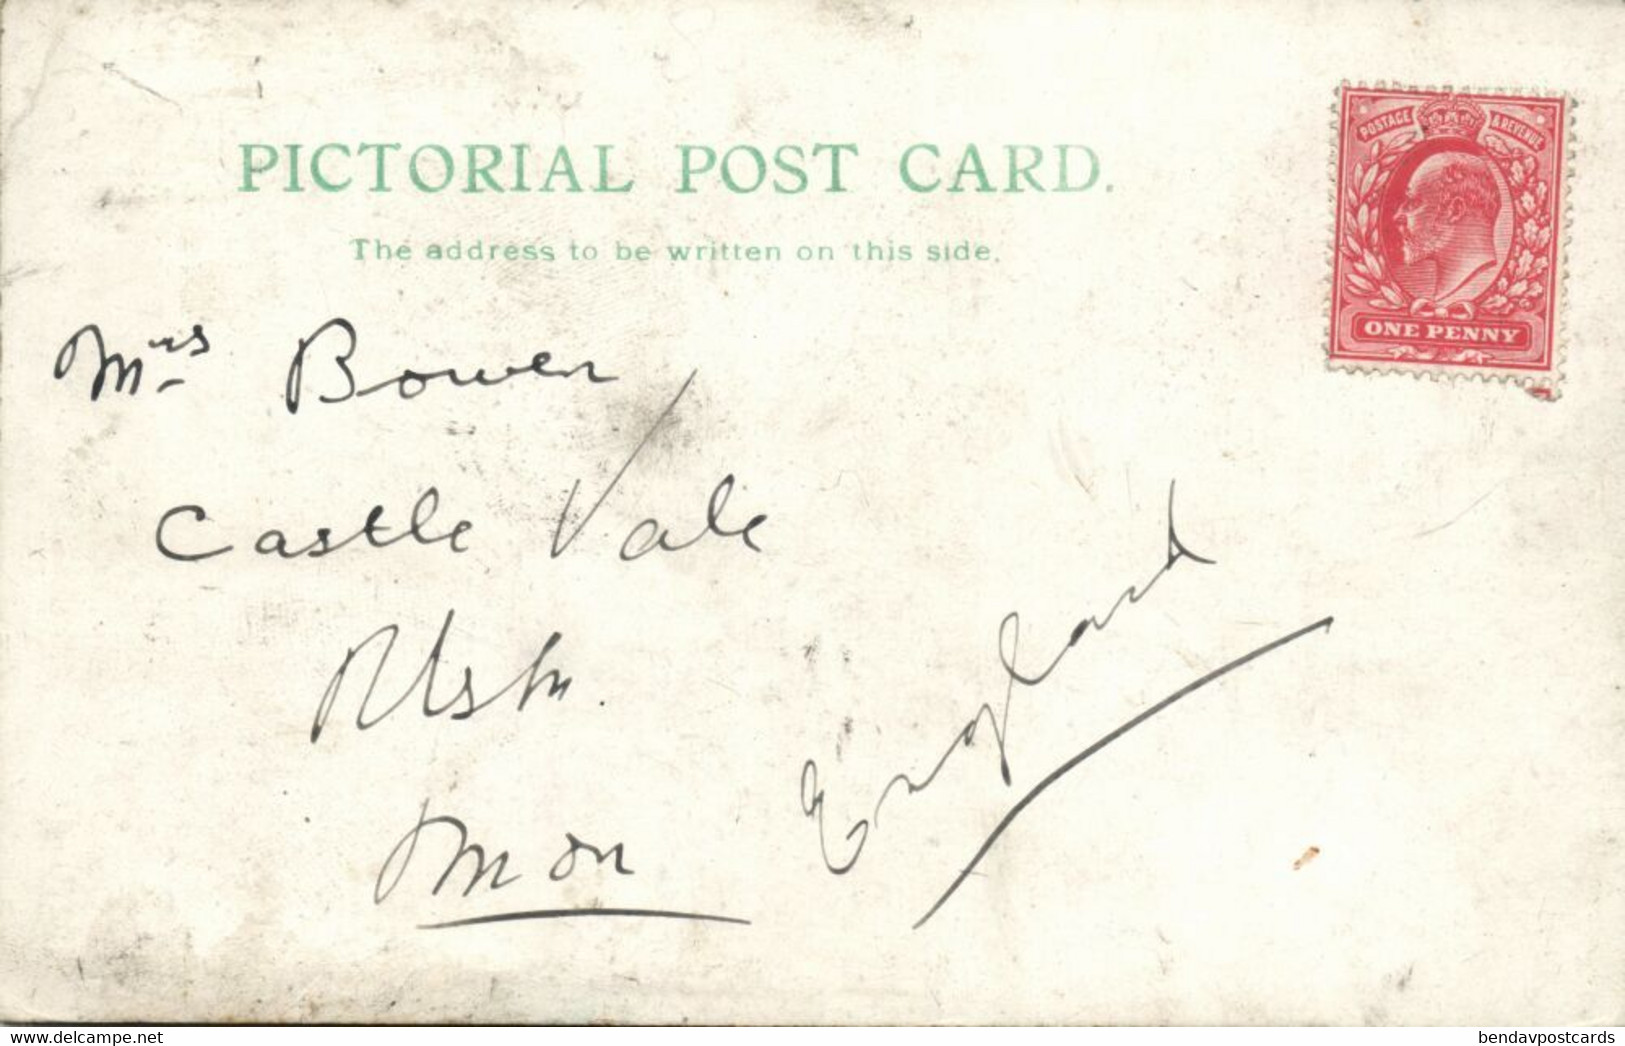 PICTORIAL POST CARD.
The address to be written on this side.
POSTAGE & REVENUE
ONE PENNY
Mrs Bowen
Castle Vale
Usk.
Mon
England
www.delcampe.net
bendavpostcards